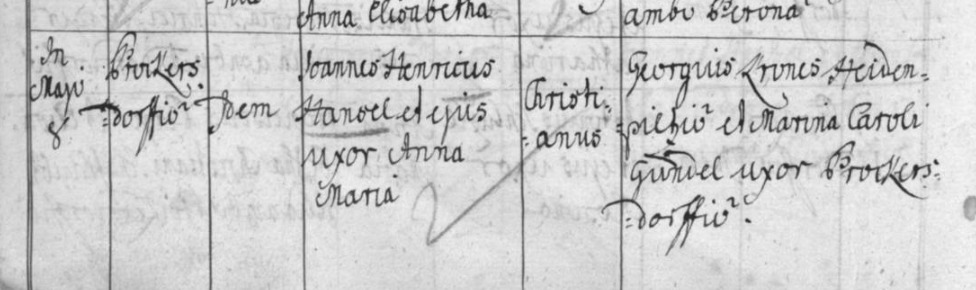 Anna Elisabetha
ambo
In Majo 8
Prokers=
=dorffio
Idem
Joannes Henricus
Hansel et ejus
uxor Anna
Maria
Christi=
=anus
Georgius Krones Heiden=
=piltio et Marina Caroli
Gündel uxor Prokers=
=dorffio.